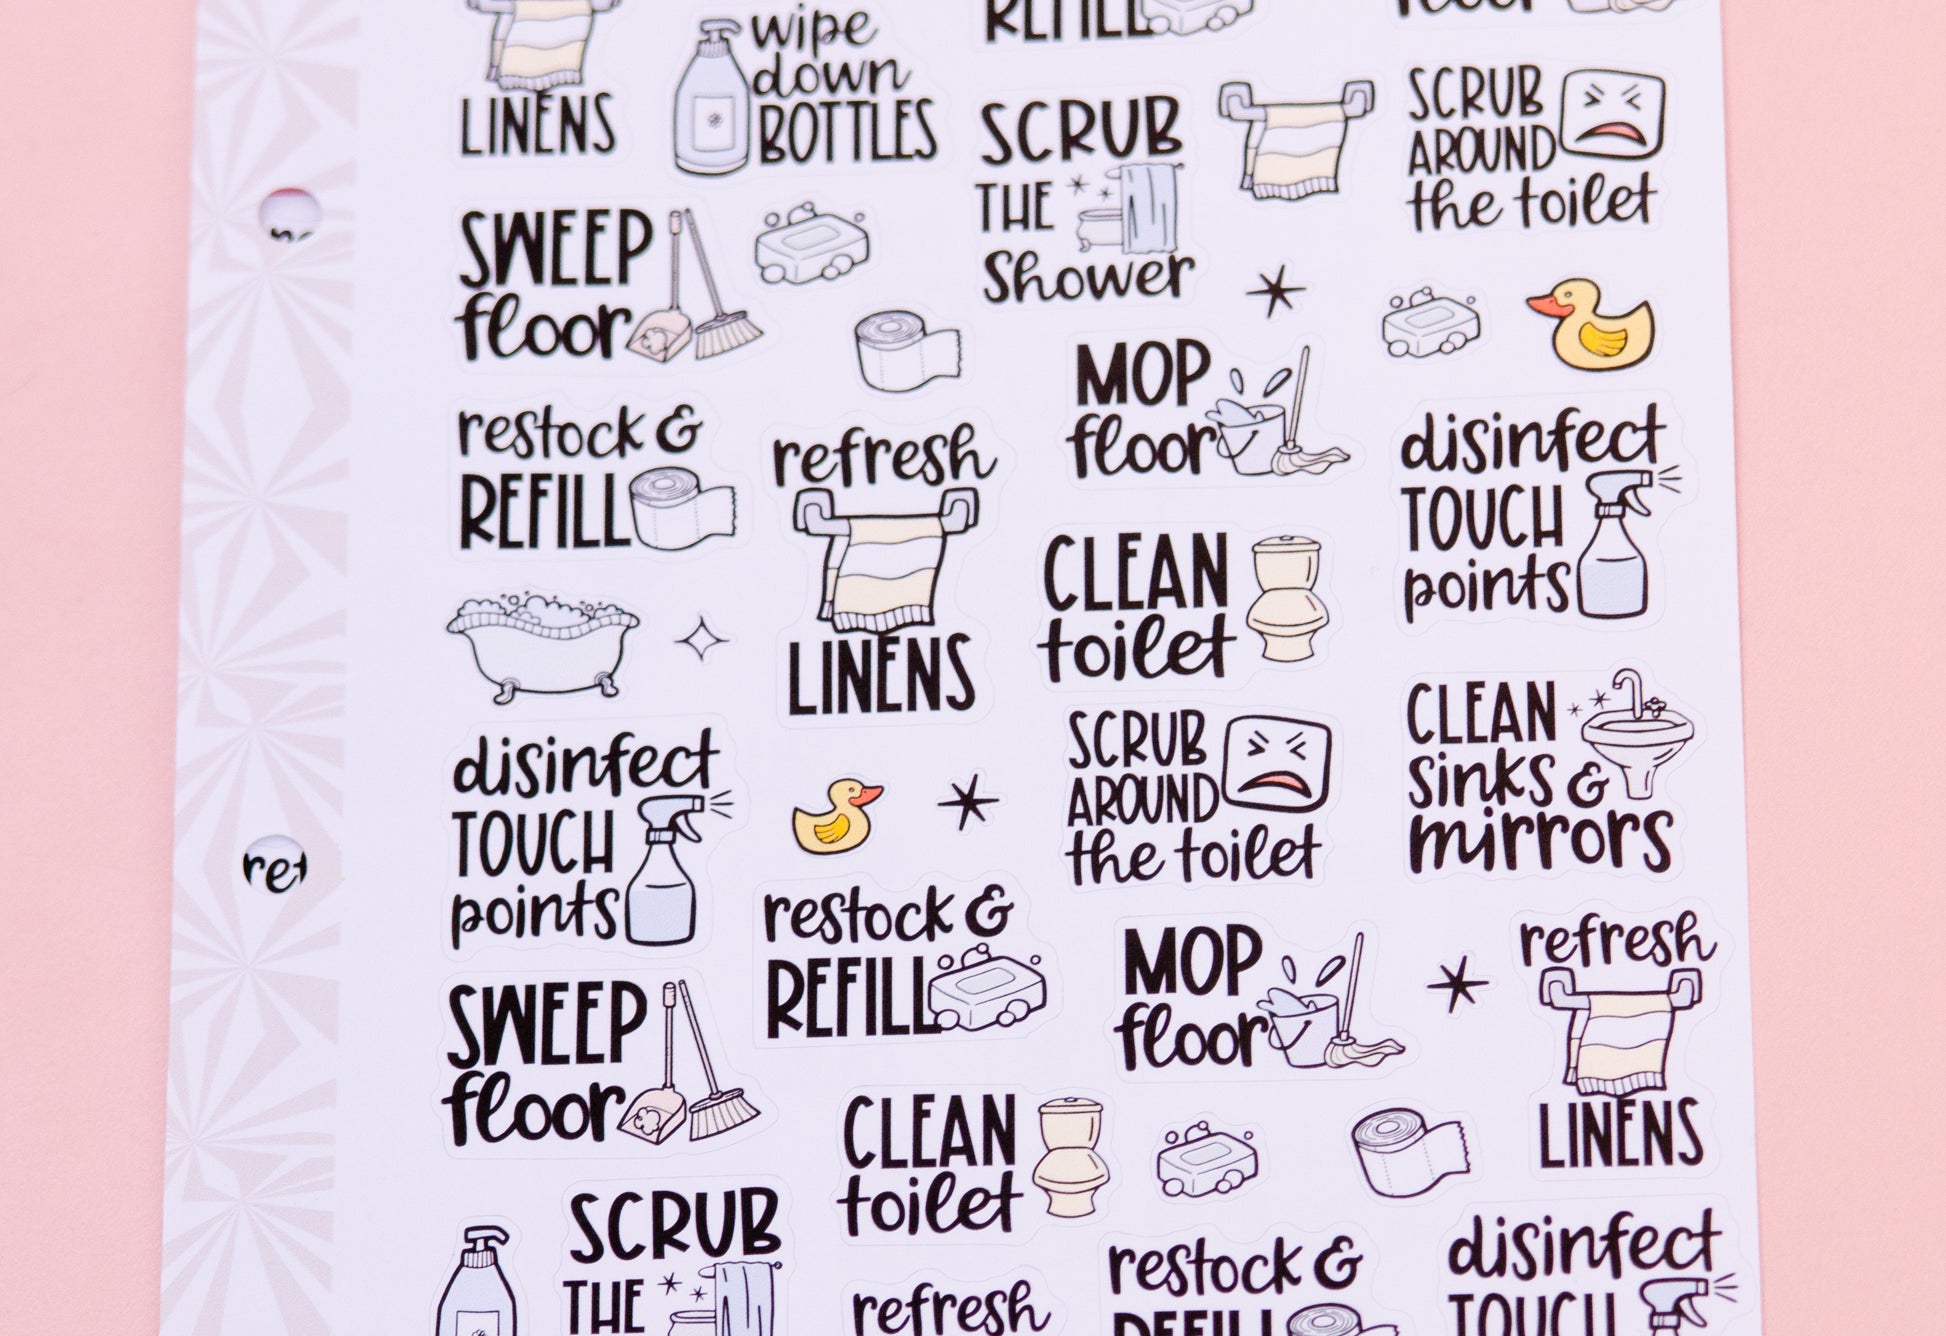 LINENS
wipe
down
BOTTLES
REFILL
floor
SCRUB
THE
Shower
SCRUB
AROUND
the toilet
SWEEP
floor
MOP
floor
restock &
REFILL
refresh
LINENS
disinfect
TOUCH
points
CLEAN
toilet
disinfect
TOUCH
points
SCRUB
AROUND
the toilet
CLEAN
sinks &
mirrors
restock &
REFILL
MOP
floor
refresh
LINENS
SWEEP
floor
CLEAN
toilet
SCRUB
THE
refresh
restock &
REFILL
disinfect
TOUCH
ref